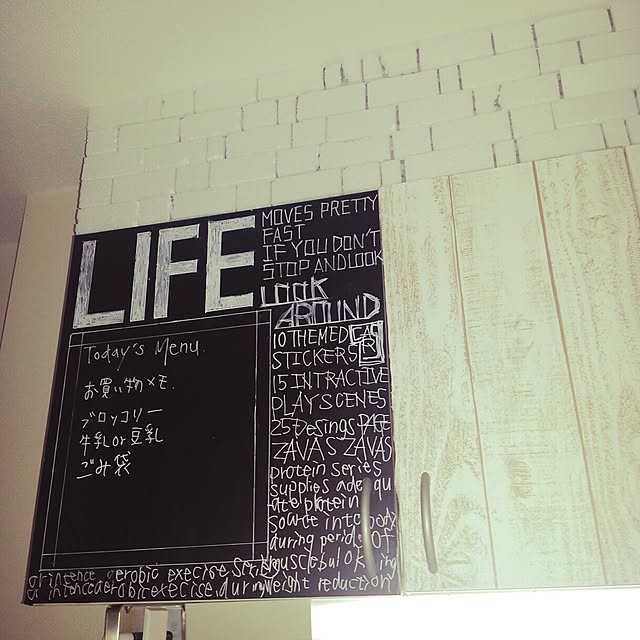 LIFE
MOVES PRETTY
FAST
IF YOU DON'T
STOP AND LOOK
LOOK
AROUND
Today's Menu.
お買い物メモ.
ブロッコリー
牛乳or豆乳
ごみ袋
10 THEMED
STICKERS
15 INTRACTIVE
PLAY SCENES
25 Desings PAGE
ZAVAS ZAVAS
protein series
supplies ade qu
ate protein
source into body
during periods of
aerobic execise
aerobic execise, during weight reduction